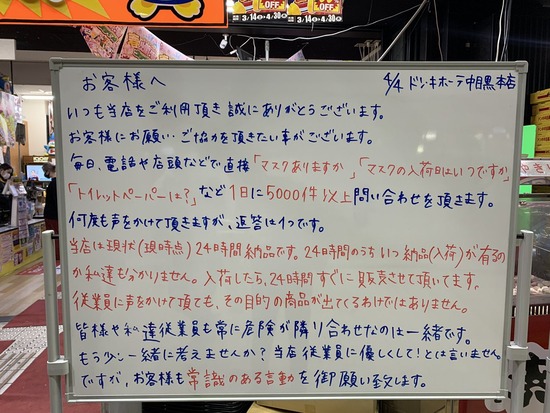 OFF
3/14㊏-4/30㊍
OFF
3/14㊏-4/30㊍
お客様へ
4/4 ドン・キホーテ中目黒本店
いつも当店をご利用頂き誠にありがとうございます。
お客様にお願い・ご協力を頂きたい事がございます。
毎日、電話や店頭などで直接「マスクありますか」「マスクの入荷日はいつですか」
「トイレットペーパーは?」など1日に5000件以上問い合わせを頂きます。
何度も声をかけて頂きますが、返答は1つです。
当店は現状(現時点)24時間納品です。24時間のうちいつ納品(入荷)が有るの
か私達も分かりません。入荷したら、24時間すぐに販売させて頂いてます。
従業員に声をかけて頂ても、その目的の商品が出てくるわけではありません。
皆様や私達従業員も常に危険が隣り合わせなのは一緒です。
もう少し一緒に考えませんか?当店従業員に優しくして!とは言いません
ですが、お客様も常識のある言動を御願い致します。